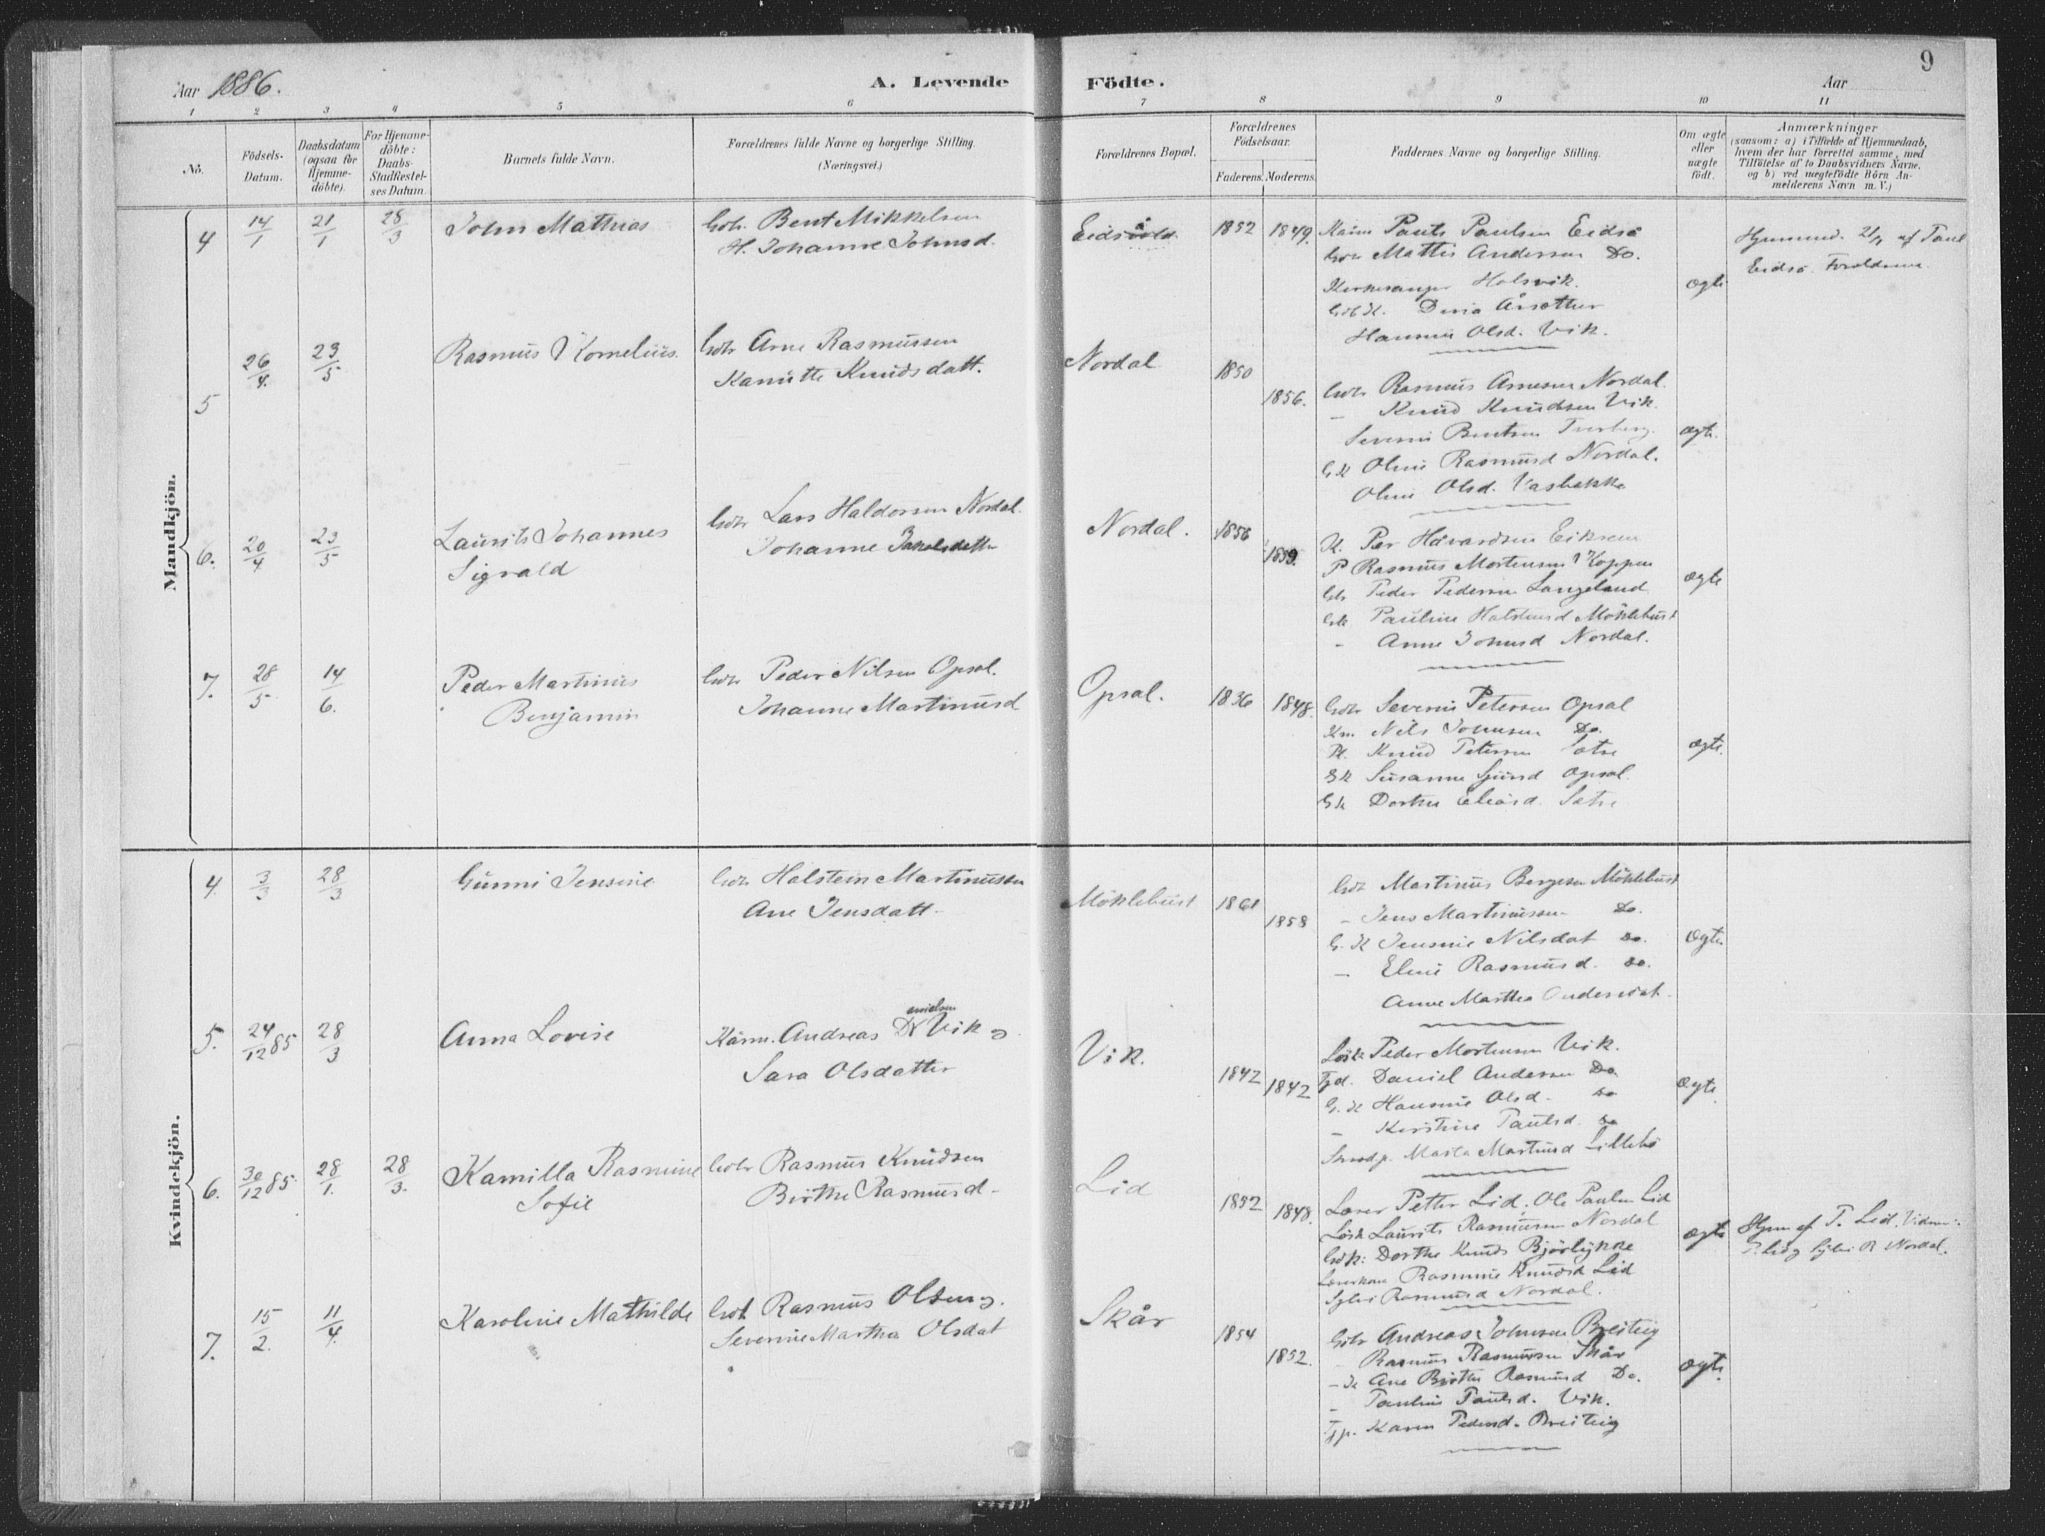 9
Aar 1886.
A. Levende Födte.
Aar
1 2 3 4 5 6 7 8 9 10 11
No.
Födsels-Datum.
Daabsdatum (ogsaa for Hjemme-döbte).
For Hjemme-döbte: Daabs-Stadfæstel-ses Datum.
Barnets fulde Navn.
Forældrenes fulde Navne og borgerlige Stilling. (Næringsvei.)
Forældrenes Bopæl.
Forældrenes Födselsaar.
Faderens. Moderens.
Faddernes Navne og borgerlige Stilling.
Om ægte eller uægte födt.
Anmærkninger
(saasom: a) i Tilfælde af Hjemmedaab,
hvem der har forrettet samme, med
Tilföielse af to Daabsvidners Navne.
og b) ved uægtefödte Börn An-
melderens Navn m. V.)
Mandkjön.
4 14/1 21/1 28/3 John Mathias
Gbr. Bent Mikkelsen
H. Johanne Johnsd.
Eidså 1852 1849.
Paul Paulsen Eidså
Gbr Mattis Andersen Do.
Kirkesanger Holsvik.
Dina Årsæther
Hansine Olsd. Vik.
ægte
Hjemmed. 21/1 af Paul
Eidså. Forældrene.
5 26/4. 23/5 Rasmus Kornelius.
Gbr Arne Rasmussen
Kanutte Knudsdatt.
Nordal 1850 1856.
Gbr Rasmus Arnesen Nordal.
- Knud Knudsen Vik.
Severin Bentsen Tverberg.
G.K Oline Rasmusd Nordal.
Oline Olsd. Vasbakke
ægte.
6. 20/4 23/5 Laurits Johannes
Sigvald
Gbr Lars Haldorsen Nordal.
Johanne Jakobsdatter
Nordal. 1856 1859.
K. Per Håvardsen Eiksem
P Rasmus Mortensen Koppen
Gbr Peder Pedersen Langeland
Gk Pauline Halsteinsd Möklebust
- Anne Johnsd Nordal.
ægte
7. 28/5. 14/6. Peder Martinus
Benjamin
Gbr Peder Nilsen Opsal.
Johanne Martinusd
Opsal. 1836 1848.
Gbr Severin Petersen Opsal
Nils Johnsen Do.
Knud Petersen Sætre
GK Susanne Sjursd Opsal.
GK Dorthe Eliasd. Sætre
ægte.
Kvindekjön.
4. 3/3 28/3 Gunni Jensine
Gbr Halstein Martinussen
Ane Jensdatt.
Möklebust 1861 1858
Gbr Martinus Bergesen Möklebust
- Jens Martinussen Do.
G.K Jensine Nilsdat Do.
- Eline Rasmusd. Do.
Anne Martha Andersdat.
Ægte.
5. 24/12 85 28/3 Anna Lovise
Andreas Danielsen Vik og
Sara Olsdatter
Vik. 1842 1842
Peder Mortensen Vik.
Daniel Andersen Do.
G.K Hansine Olsd. Do
- Kirstine Paulsd. Do
Marta Martinusd Lillebö
Ægte.
6. 30/12 85. 28/1. 28/3. Kamilla Rasmine
Sofie
Gbr Rasmus Knudsen
Birthe Rasmusd.
Lid 1852 1848.
Lærer Petter Lid. Ole Paulsen Lid
Laurits Rasmussen Nordal
Gbk: Dorthe Knuds Bjørlykke
Rasmine Knudsd Lid
Sylvi Rasmusd Nordal.
ægte
Hjem af P. Lid. Vidner:
P. Lid og Sylvi R Nordal.
7. 15/2. 11/4. Karoline Mathilde
Gbr Rasmus Olsen og
Severine Martha Olsdat
Skår 1854 1852.
Gbr Andreas Johnsen Breiteig
Rasmus Rasmussen Skår
- K Ane Birthe Rasmusd Do.
- Pauline Paulsd. Vik.
Karen Pedersd. Breiteig
ægte.